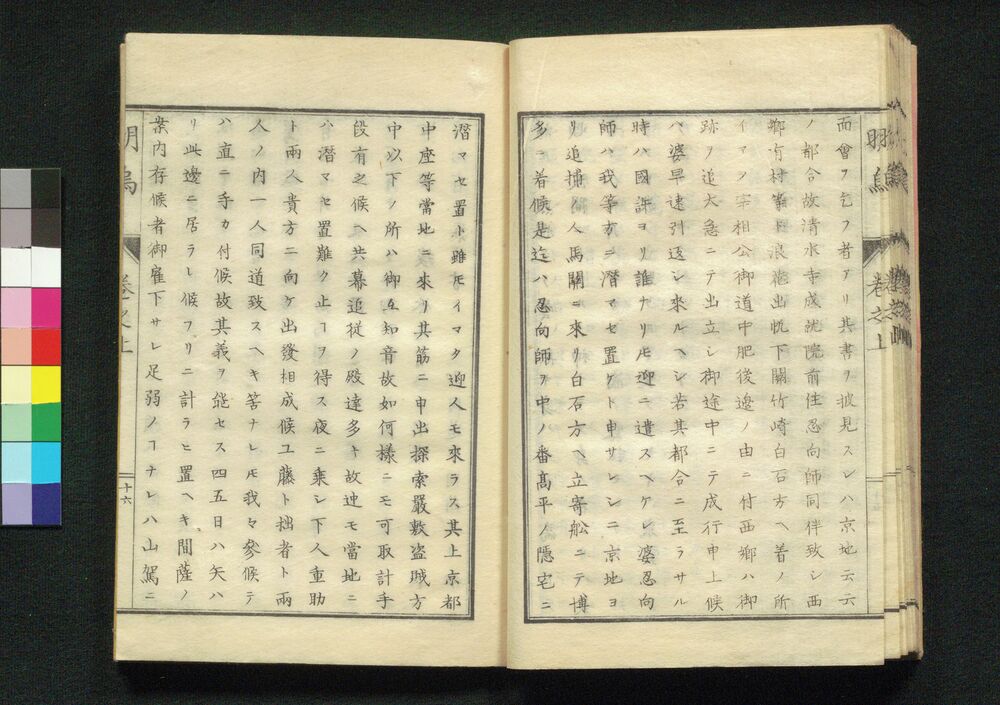 面會ヲ乞フ者アリ其書ヲ披見スレハ京地云云
ノ都合故清水寺成就院前住忍向師同伴致シ西
鄕有村等ト浪花出帆下關竹崎白石方ヘ着ノ所
イマタ宰相公御道中肥後邊ノ由ニ付西鄕ハ御
跡ヲ追大急ニテ出立シ御途中ニテ成行申上候
ハ婆早速引返シ來ルヘシ若其都合ニ至ラサル
時ハ國許ヨリ誰ナリ𪜈迎ニ遣スヘケレ婆忍向
師ハ我等方ニ潛マセ置ケト申サレシニ京地ヨ
リ追捕ノ人馬關ニ來リ白石方ヘ立寄舩ニテ博
多ニ着候是迄ハ忍向師ヲ中ノ番髙平ノ隱宅ニ
明烏
卷之上
潛マセ置ト雖𪜈イマタ迎人モ來ラス其上京都
中座等當地ニ來リ其筋ニ申出探索嚴敷盜賊方
中以下ノ所ハ御互知音故如何樣ニモ可取計手
段有之候ヘ共幕追從ノ殿達多キ故迚モ當地ニ
ハ潛マセ置難ク止ヿヲ得ス夜ニ乘シ下人重助
ト兩人貴方ニ向ケ出發相成候ユ藤ト拙者ト兩
人ノ内一人同道致スヘキ筈ナレ𪜈我々參候テ
ハ直ニ手カ付候故其義ヲ能セス四五日ハ矢ハ
リ此邊ニ居ラレ候フリニ計ラヒ置ヘキ間薩ノ
案内存候者御雇下サレ足弱ノヿナレハ山駕ニ
明烏
卷之上
十六